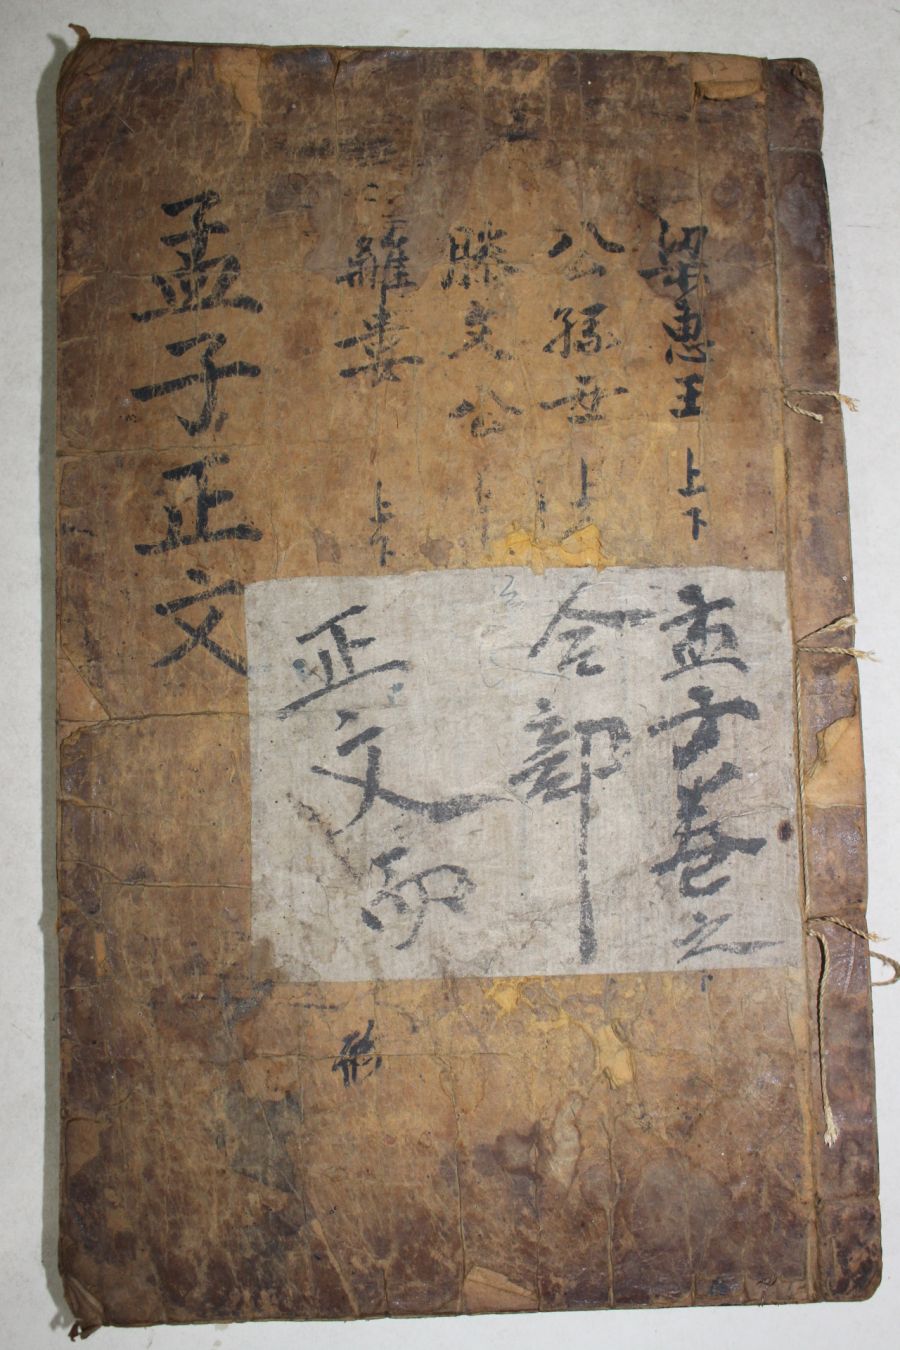 梁惠王 上下
公孫丑 上下
滕文公 上
離婁 上下
孟子正文
孟子卷之
合部
正文